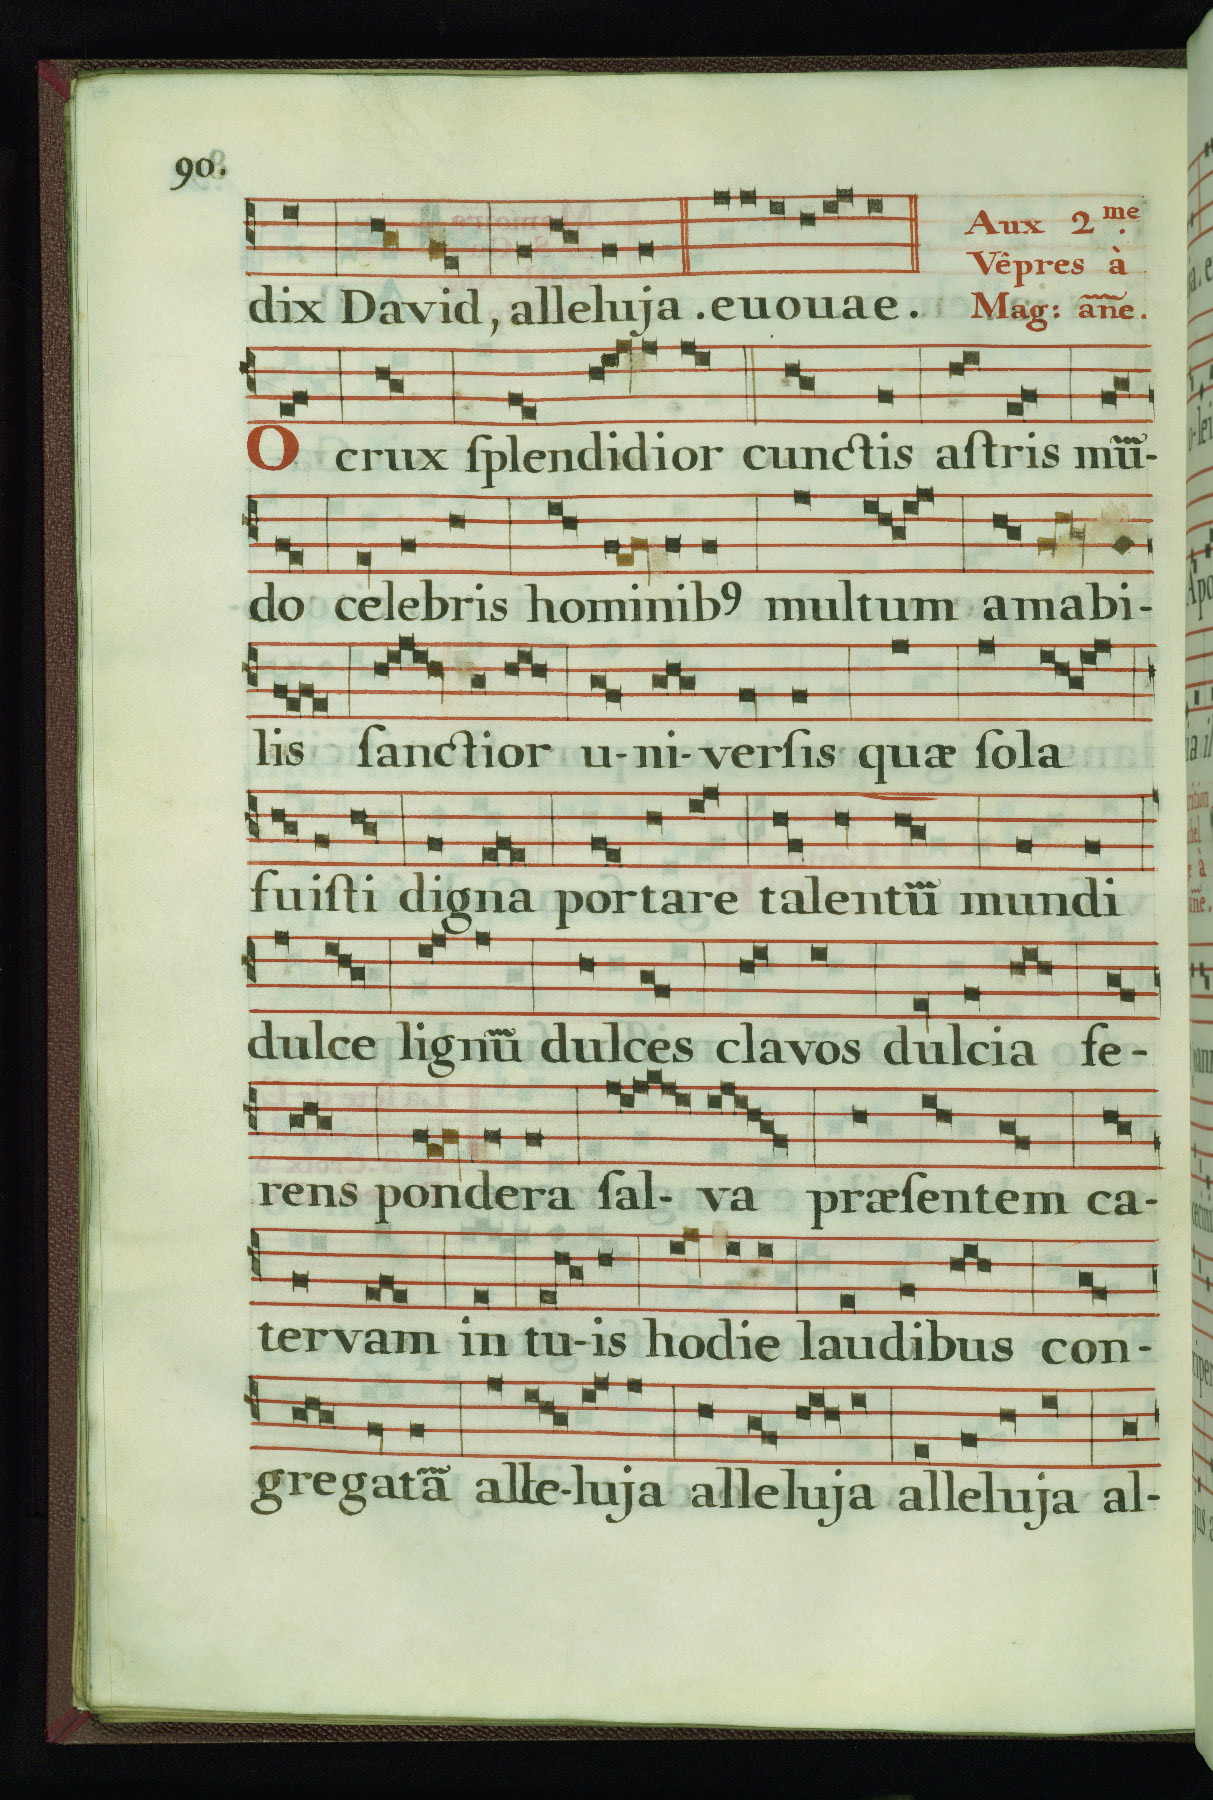 90.
dix David, alleluja . euouae .
Aux 2.me
Vêpres à
Mag: añe.
O crux ſplendidior cunctis aſtris mũ-
do celebris hominib9 multum amabi-
lis ſanctior u-ni-verſis quæ ſola
fuiſti digna portare talentũ mundi
dulce lignũ dulces clavos dulcia fe-
rens pondera ſal- va præſentem ca-
tervam in tu-is hodie laudibus con-
gregatã alle-luja alleluja alleluja al-